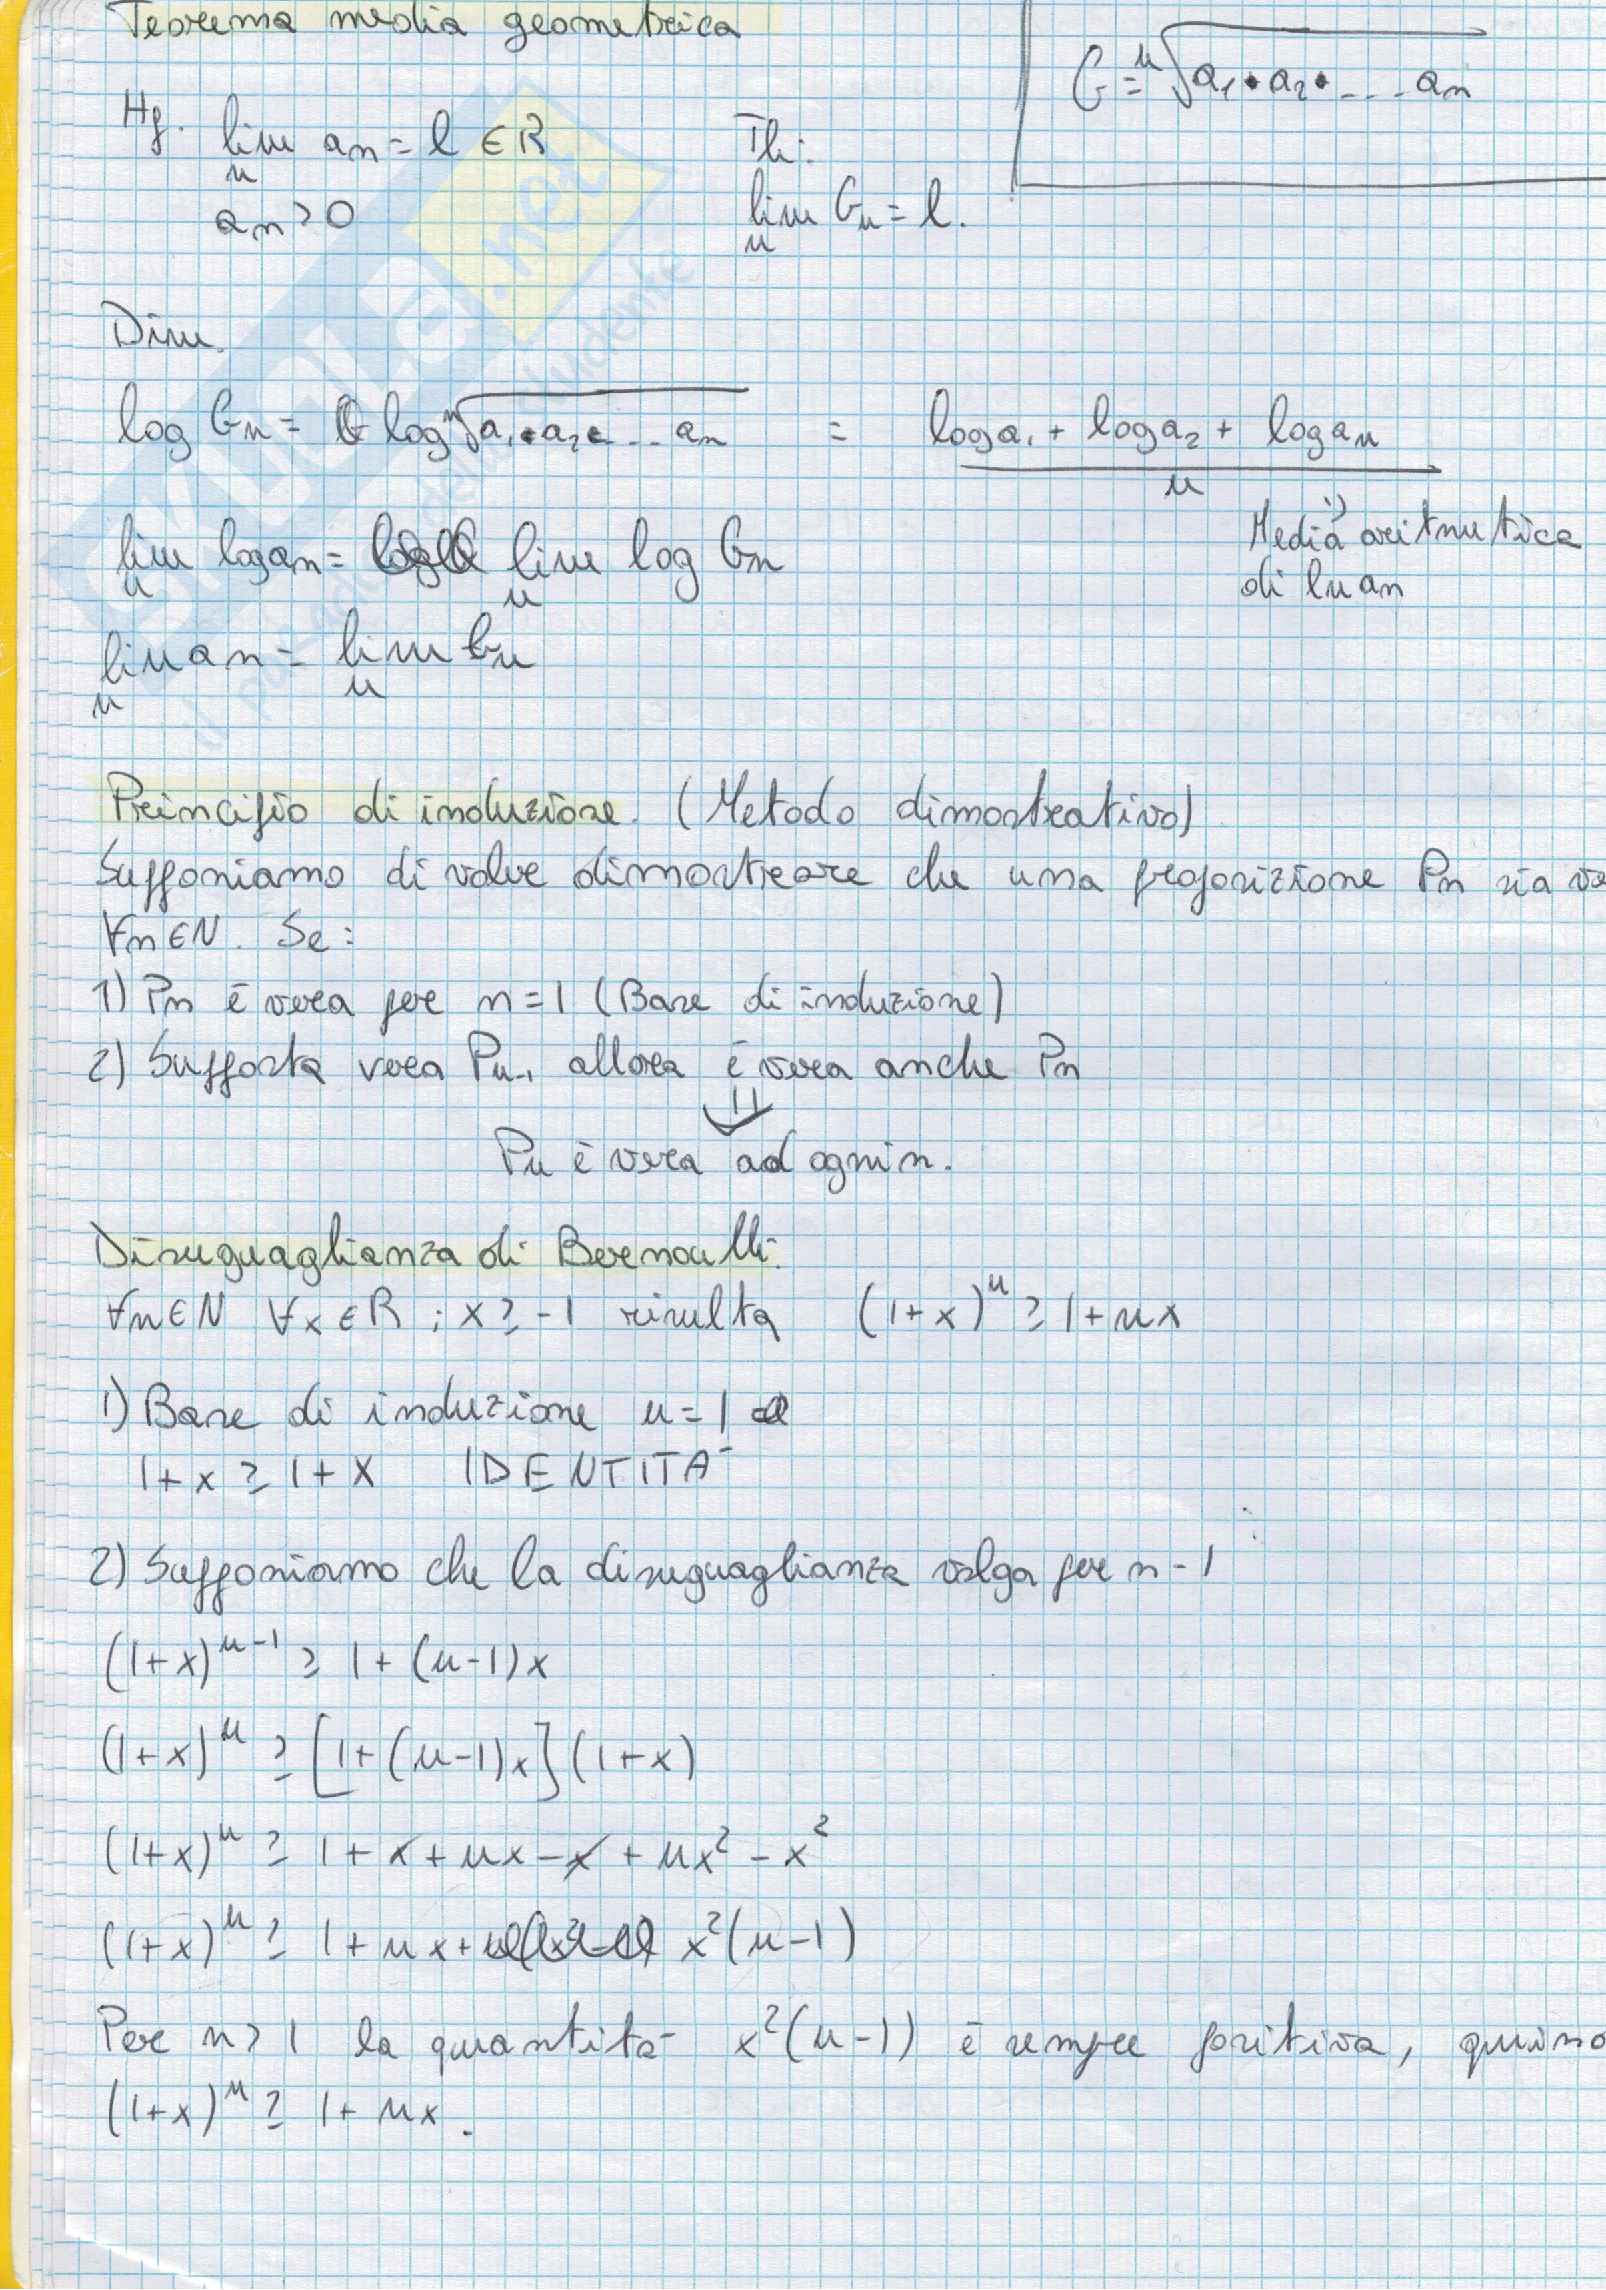 Teorema media geometrica
G = ⁿ√a₁·a₂·....aₙ
Hp. lim aₙ = l ∈ R Th:
n
aₙ > 0 lim Gₙ = l.
n
Dim.
log Gₙ = log ⁿ√a₁·a₂·... aₙ = log a₁ + log a₂ + log aₙ
n
Media aritmetica
di ln aₙ
lim log aₙ = lim log Gₙ
n n
lim aₙ = lim Gₙ
n n
Principio di induzione. (Metodo dimostrativo)
Supponiamo di voler dimostrare che una proposizione Pₙ sia
∀n∈N. Se:
1) Pₙ è vera per n=1 (Base di induzione)
2) Supposta vera Pₙ₋₁ allora è vera anche Pₙ
⇓
Pₙ è vera ad ogni n.
Disuguaglianza di Bernoulli:
∀n∈N ∀x∈R ; x ≥ -1 risulta (1+x)ⁿ ≥ 1+nx
1) Base di induzione n=1
1+x ≥ 1+x IDENTITA'
2) Supponiamo che la disuguaglianza valga per n-1
(1+x)ⁿ⁻¹ ≥ 1+(n-1)x
(1+x)ⁿ ≥ [1+(n-1)x](1+x)
(1+x)ⁿ ≥ 1+x+nx-x+nx²-x²
(1+x)ⁿ ≥ 1+nx+ x²(n-1)
Per n>1 la quantità x²(n-1) è sempre positiva,
(1+x)ⁿ ≥ 1+nx.
skuola.net